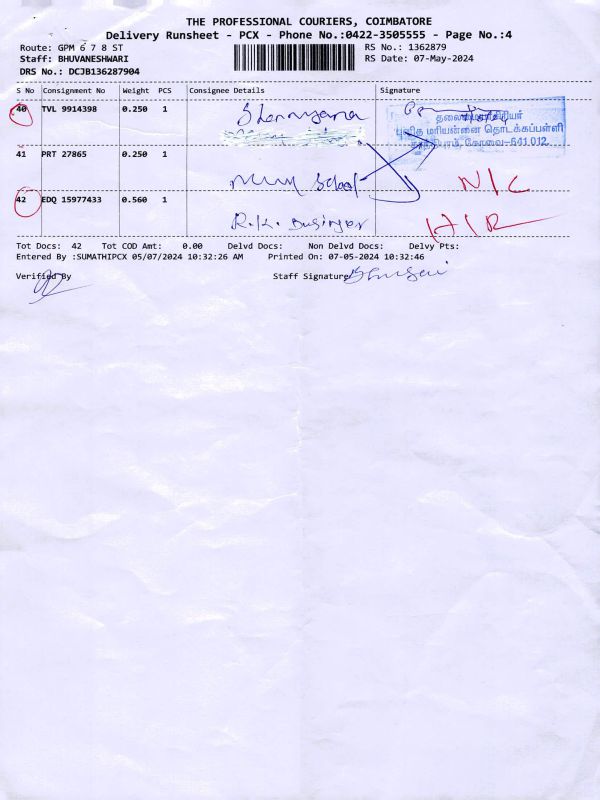 THE PROFESSIONAL COURIERS, COIMBATORE
Delivery Runsheet - PCX - Phone No.:0422-3505555 - Page No.:4
Route: GPM 6 7 8 ST
RS No.: 1362879
Staff: BHUVANESHWARI
RS Date: 07-May-2024
DRS No.: DCJB136287904
S No Consignment No Weight PCS Consignee Details Signature
40 TVL 9914398 0.250 1
தலைமையாசிரியர்
புனித மரியன்னை தொடக்கப்பள்ளி
காந்திபுரம், கோவை-641 012.
41 PRT 27865 0.250 1
School
N/C
42 EDQ 15977433 0.560 1
R.K.
Tot Docs: 42 Tot COD Amt: 0.00 Delvd Docs: Non Delvd Docs: Delvy Pts:
Entered By :SUMATHIPCX 05/07/2024 10:32:26 AM Printed On: 07-05-2024 10:32:46
Verified By Staff Signature